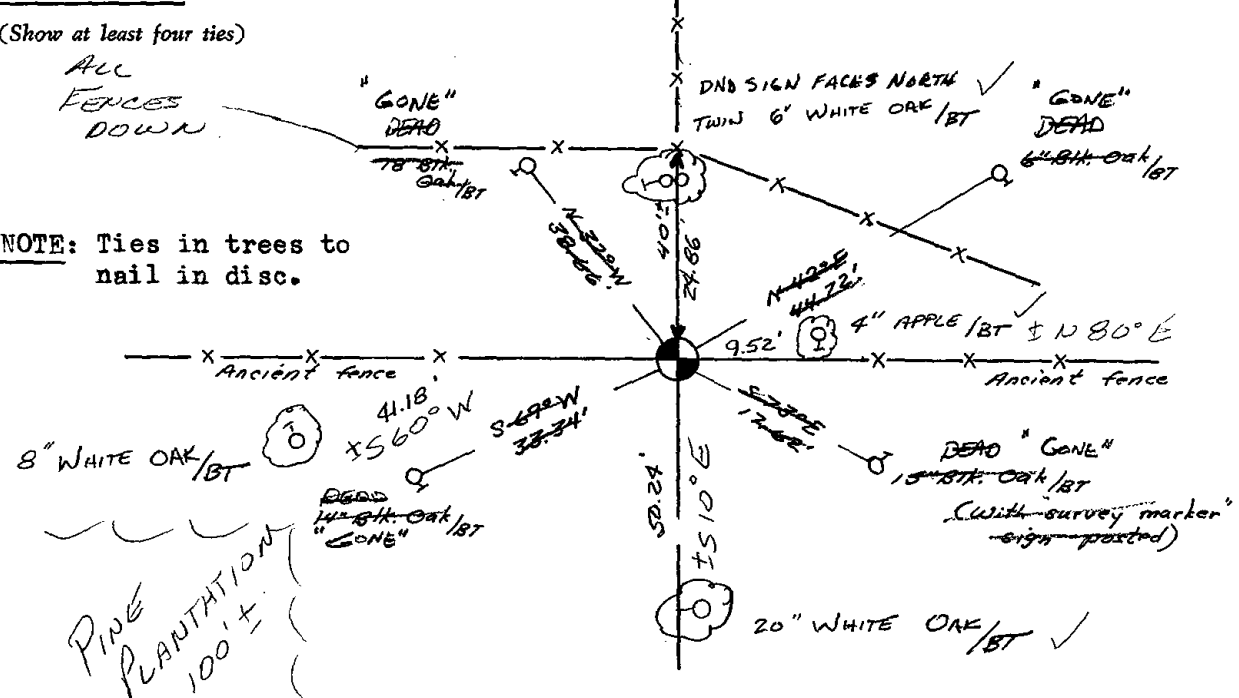 (Show at least four ties)
ALL
FENCES
DOWN
"GONE"
DEAD
18" Blk.
Oak/BT
DND SIGN FACES NORTH ✓
TWIN 6" WHITE OAK/BT
"GONE"
DEAD
6" Blk. Oak/BT
NOTE: Ties in trees to
nail in disc.
N 32° W
38.66'
40'±
24.86'
N 42° E
44.72'
9.52'
4" APPLE/BT ✓ ± N 80° E
Ancient fence
Ancient fence
41.18'
±S60°W
8" WHITE OAK/BT
S 69° W
33.34'
S 73° E
DEAD
14" Blk. Oak/BT
"GONE"
50.24'
±S10°E
DEAD "GONE"
15" Blk. Oak/BT
(with "survey marker"
sign posted)
PINE
PLANTHATION
100'±
20" WHITE OAK/BT ✓